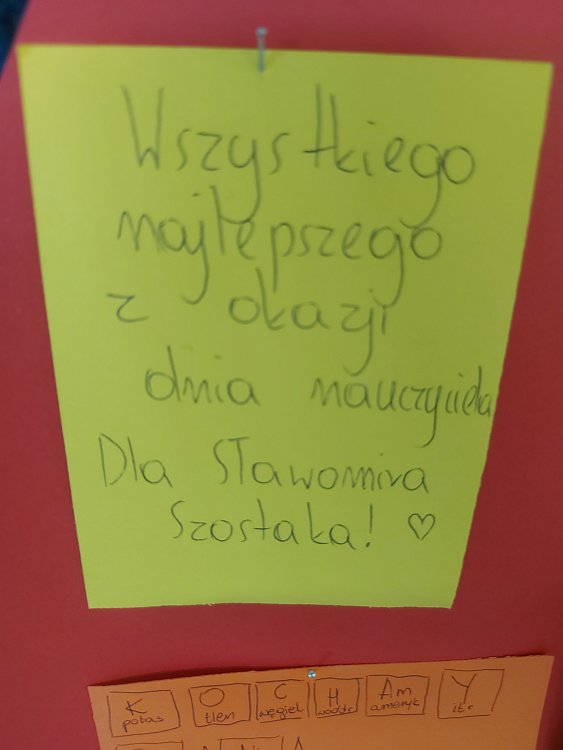 Wszystkiego
najlepszego
z okazji
dnia nauczyciela
Dla Sławomira
Szostaka! ♡
K O C H Am Y
potas tlen węgiel wodór ameryk itr